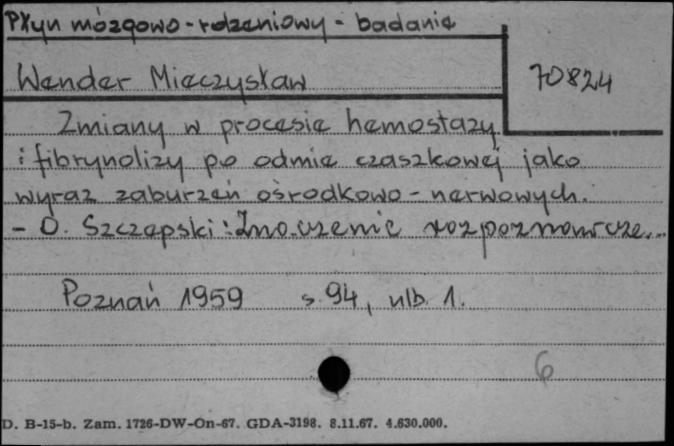 Płyn mózgowo-rdzeniowy - badanie
Wender Mieczysław
70824
Zmiany w procesie hemostazy
i fibrynolizy po odmie czaszkowej jako
wyraz zaburzeń ośrodkowo-nerwowych.
- O. Szczepski: Znaczenie rozpoznawcze...
Poznań 1959 s. 94, nlb. 1.
6
D. B-15-b. Zam. 1726-DW-On-67. GDA-3198. 8.11.67. 4.630.000.